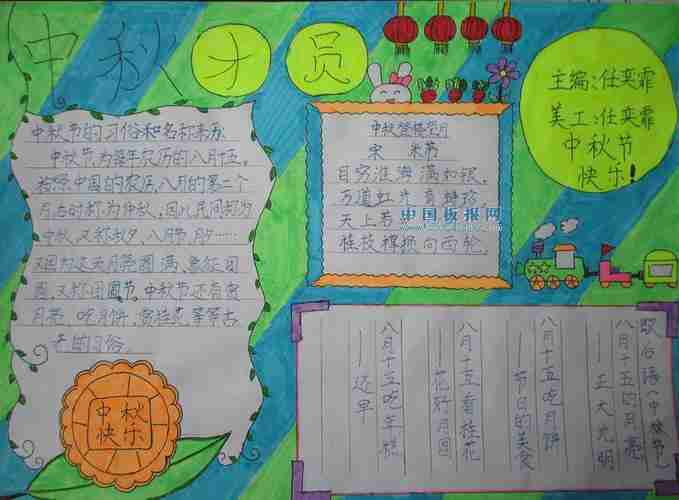 中秋才员
中秋节的习俗和名称来历
中秋节为每年农历的八月十五。
按照中国的农历，八月的第二个
月古时称为仲秋，因此民间称为
中秋，又称秋夕、八月节、月夕……
又因为这天月亮圆满，象征团
圆，又称团圆节。中秋节还有赏
月亮、吃月饼、赏桂花等等古
老的习俗。
中秋
快乐
中秋登楼望月
宋 米芾
目穷淮海满如银，
万道虹光育蚌珍。
天上若
桂枝撑损向西轮。
中国板报网
主编：任奕霏
美工：任奕霏
中秋节
快乐！
歇后语（中秋节）
八月十五的月亮
——正大光明
八月十五吃月饼
——节日的美食
八月十五看桂花
——花好月圆
八月十五吃年糕
——还早